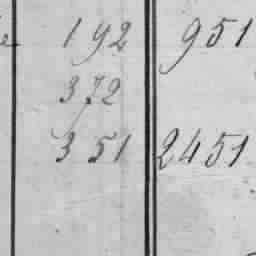 192 951
372
351 2451